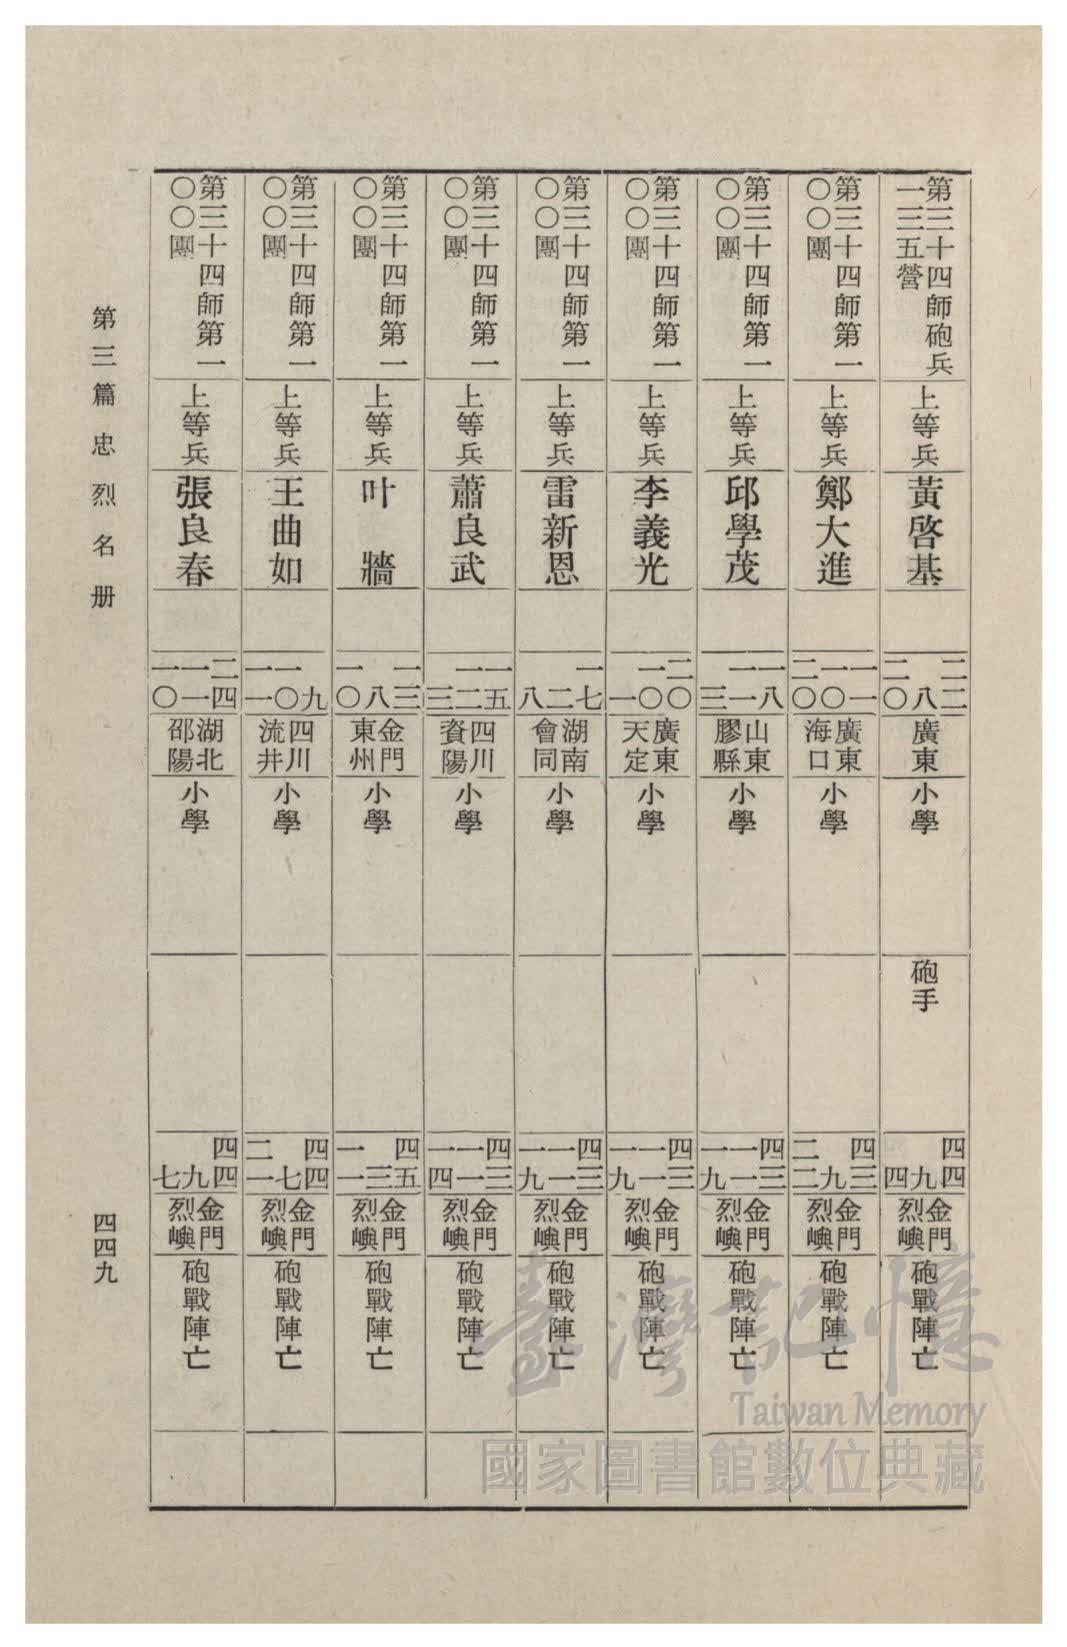 第三十四師砲兵
一三五營
上等兵
黃啓基
二二
八
二〇
廣東
小學
砲手
四四
九
四
金門
烈嶼
砲戰陣亡
第三十四師第一
〇〇團
上等兵
鄭大進
一一
一〇
二〇
廣東
海口
小學
四三
九
二二
金門
烈嶼
砲戰陣亡
第三十四師第一
〇〇團
上等兵
邱學茂
一八
一一
三
山東
膠縣
小學
四三
一一
一九
金門
烈嶼
砲戰陣亡
第三十四師第一
〇〇團
上等兵
李義光
二〇
一〇
一
廣東
天定
小學
四三
一一
一九
金門
烈嶼
砲戰陣亡
第三十四師第一
〇〇團
上等兵
雷新恩
一七
二
八
湖南
會同
小學
四三
一一
一九
金門
烈嶼
砲戰陣亡
第三十四師第一
〇〇團
上等兵
蕭良武
一五
一二
三
四川
資陽
小學
四三
一一
一四
金門
烈嶼
砲戰陣亡
第三十四師第一
〇〇團
上等兵
叶　牆
一三
八
一〇
金門
東州
小學
四五
三
一一
金門
烈嶼
砲戰陣亡
第三十四師第一
〇〇團
上等兵
王曲如
九
一〇
一一
四川
流井
小學
四四
七
二一
金門
烈嶼
砲戰陣亡
第三十四師第一
〇〇團
上等兵
張良春
二四
一一
一〇
湖北
邵陽
小學
四四
九
七
金門
烈嶼
砲戰陣亡
第三篇 忠烈名册
四四九
臺灣記憶
Taiwan Memory
國家圖書館數位典藏